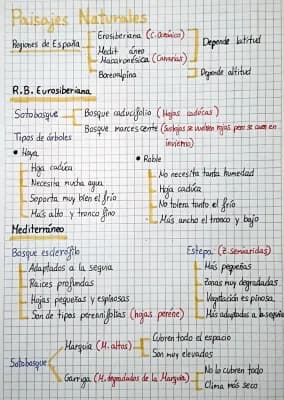 Paisajes Naturales
Regiones de España
Erosiberiana (C. Oceánico)
Medit áneo
Macaronésica (Canarias)
Depende latitud
Boreoalpina
Depende altitud
R.B. Eurosiberiana
Sotobosque
Bosque caducifolio (Hojas caducas)
Bosque marcescente (Sus hojas se vuelven rojas pero se caen en
invierno)
Tipos de árboles
• Haya
Hoja caduca
Necesita mucha agua
Soporta muy bien el frío
Más alto y tronco fino
• Roble
No necesita tanta humedad
Hoja caduca
No tolera tanto el frío
Más ancho el tronco y bajo
Mediterráneo
Bosque esclerófilo
Adaptados a la sequía
Raíces profundas
Hojas pequeñas y espinosas
Son de tipos perennifolias (hojas perene)
Estepa (Z. semiaridas)
Más pequeñas
Zonas muy degradadas
Vegetación espinosa
Más adaptados a la sequía
Sotobosque
Marquia (M. altos)
Cubren todo el espacio
Son muy elevados
Garriga (M. degradados de la Marquia)
No lo cubren todo
Clima más seco